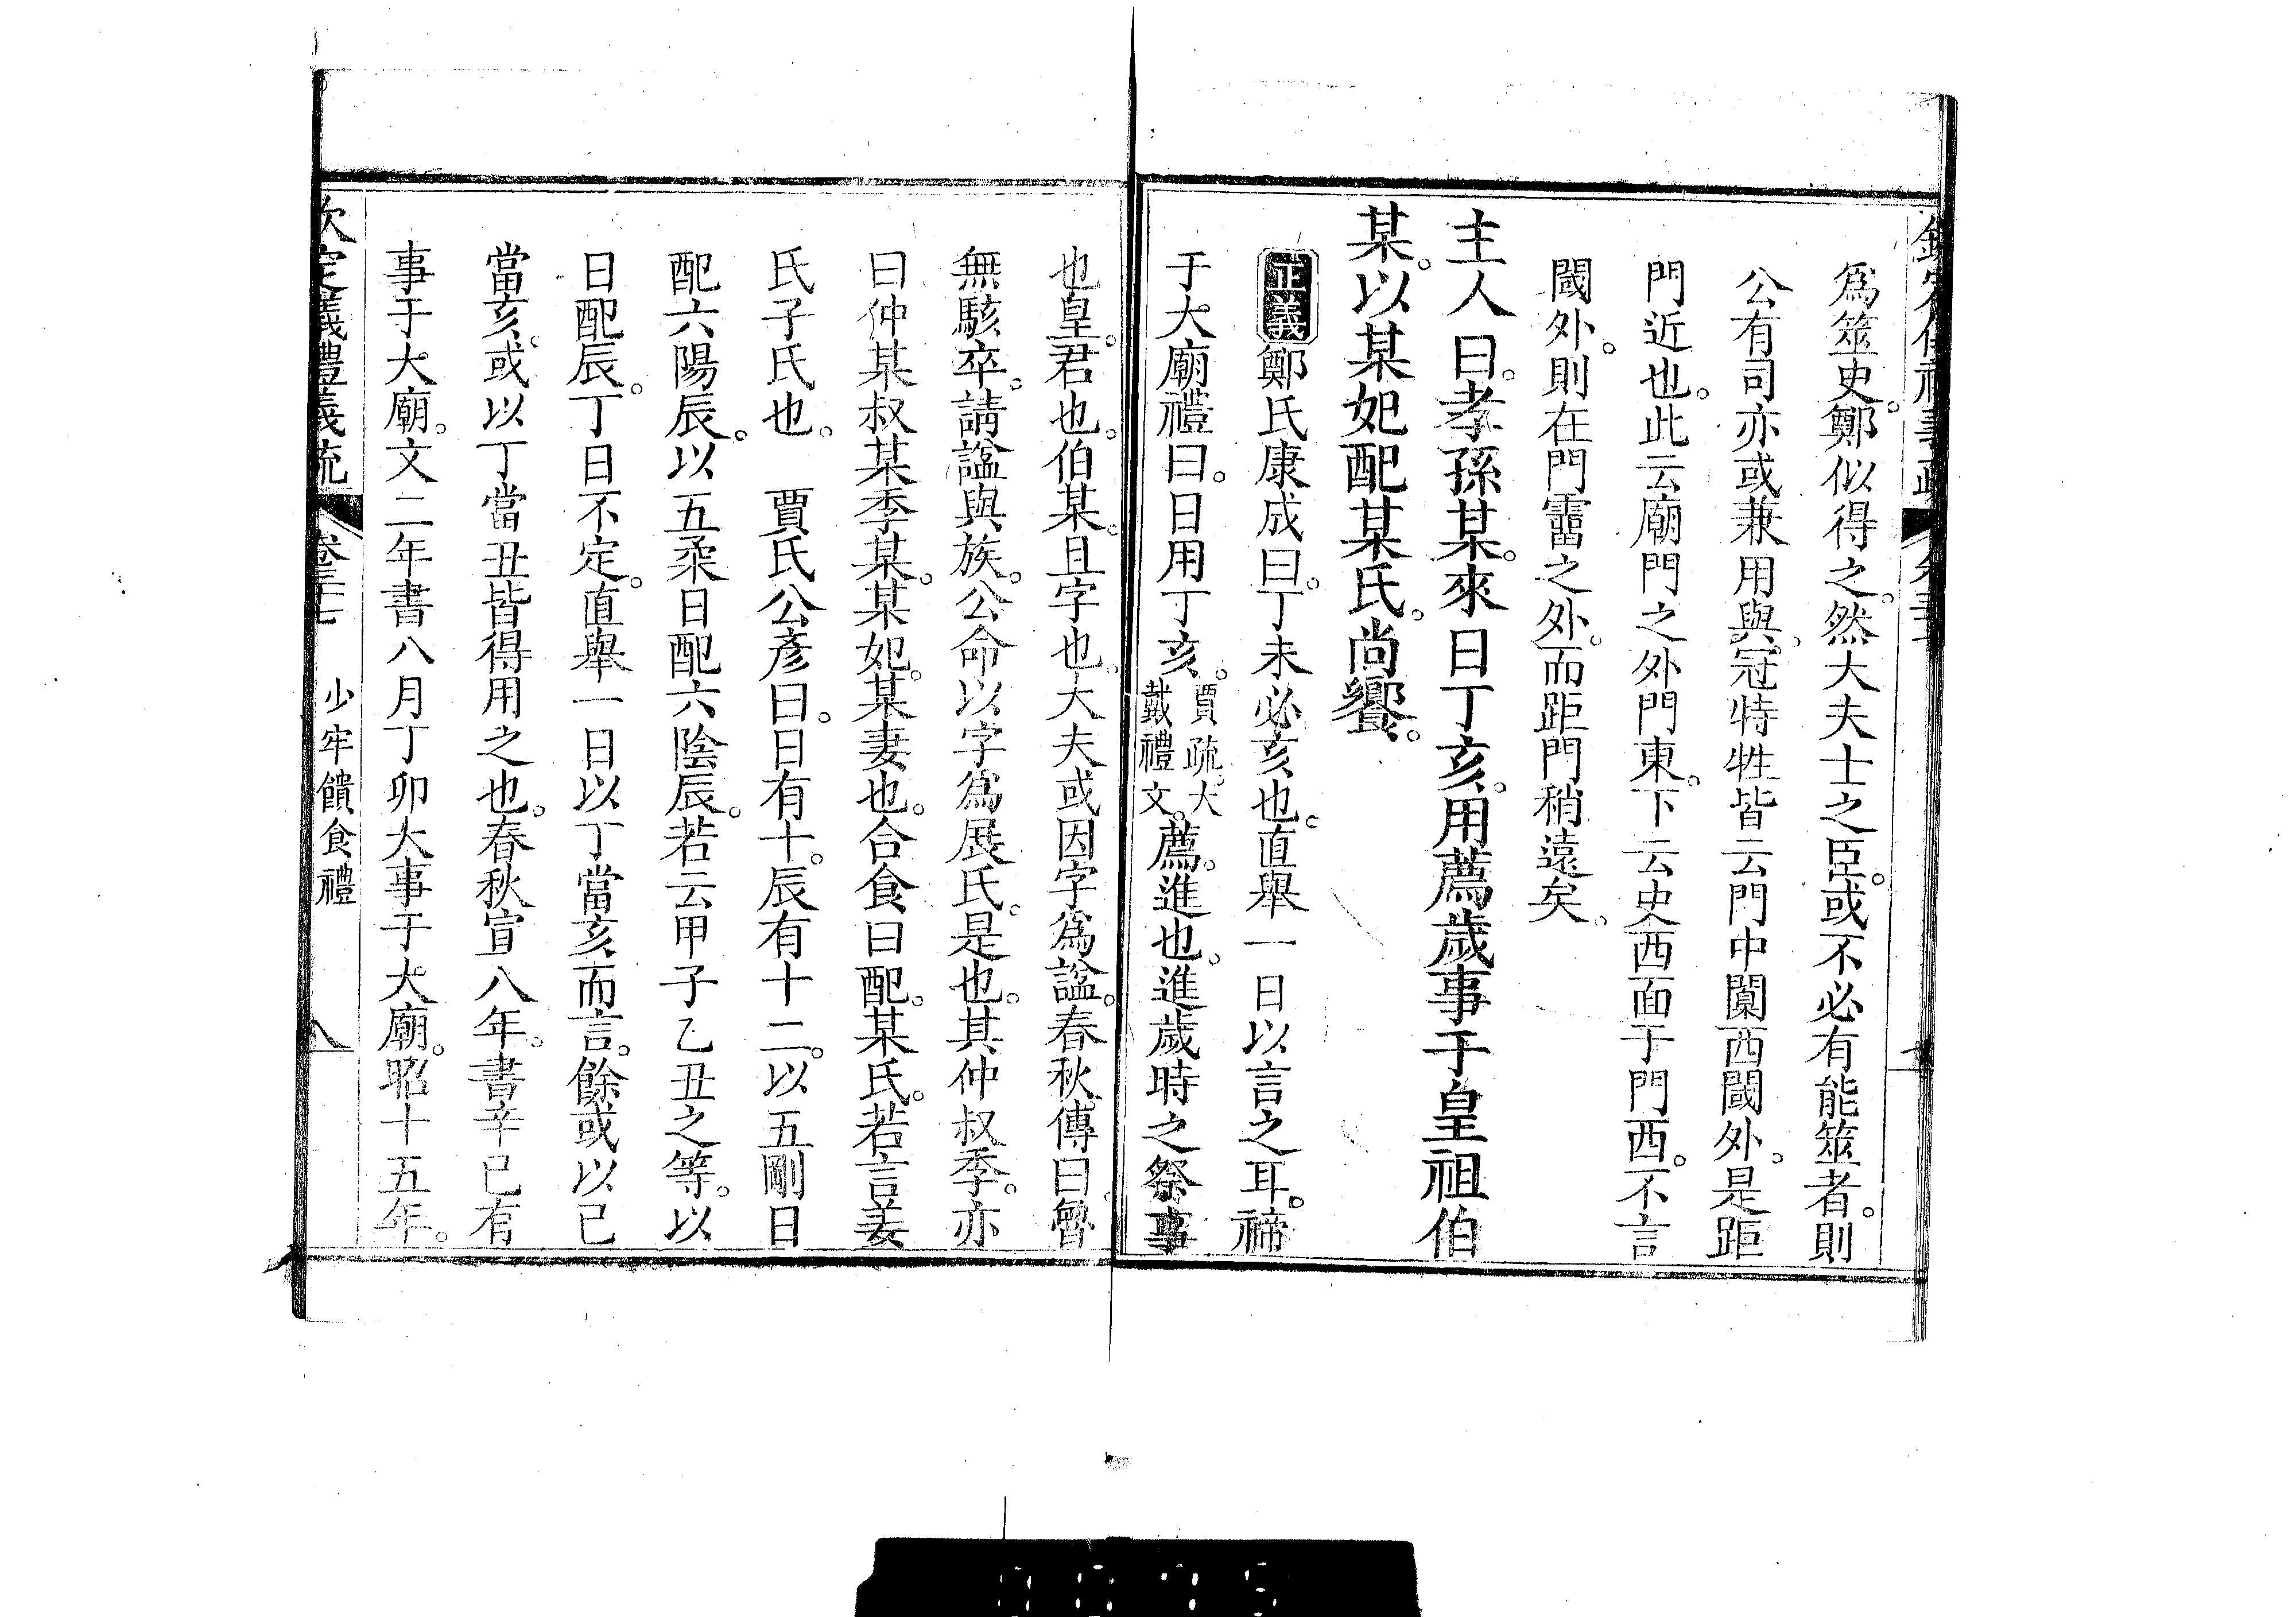 為筮史。鄭似得之。然大夫士之臣。或不必有能筮者。則
公有司亦或兼用與。冠特牲皆云門中闑西閾外。是距
門近也。此云廟門之外門東。下云史西面于門西。不言
閾外。則在門霤之外。而距門稍遠矣。
主人曰。孝孫某。來日丁亥。用薦歲事于皇祖伯
某。以某妃配某氏。尚饗。
正義鄭氏康成曰。丁未必亥也。直舉一日以言之耳。禘
于大廟禮曰。日用丁亥。賈疏。大戴禮文。薦。進也。進歲時之祭事
也。皇。君也。伯某。且字也。大夫或因字為諡。春秋傳曰。魯
無駭卒。請諡與族。公命以字為展氏。是也。其仲叔季。亦
曰仲某叔某季某。某妃。某妻也。合食曰配。某氏。若言姜
氏子氏也。 賈氏公彥曰。日有十。辰有十二。以五剛日
配六陽辰。以五柔日配六陰辰。若云甲子乙丑之等。以
日配辰。丁日不定。直舉一日以丁當亥而言。餘或以己
當亥。或以丁當丑皆得用之也。春秋宣八年。書辛巳有
事于大廟。文二年書八月丁卯大事于大廟。昭十五年。
欽定儀禮義疏 卷三十七 少牢饋食禮 八